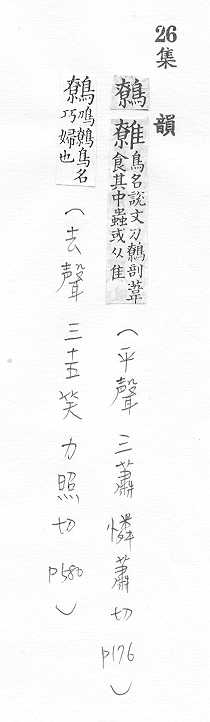 26集韻
鷯
鳥名說文刀鷯剖葦
食其中蟲或从隹
(平聲 三蕭 憐蕭切 p176)
鷯
鳭鷯鳥名
巧婦也
(去聲 三十五笑 力照切 p580)